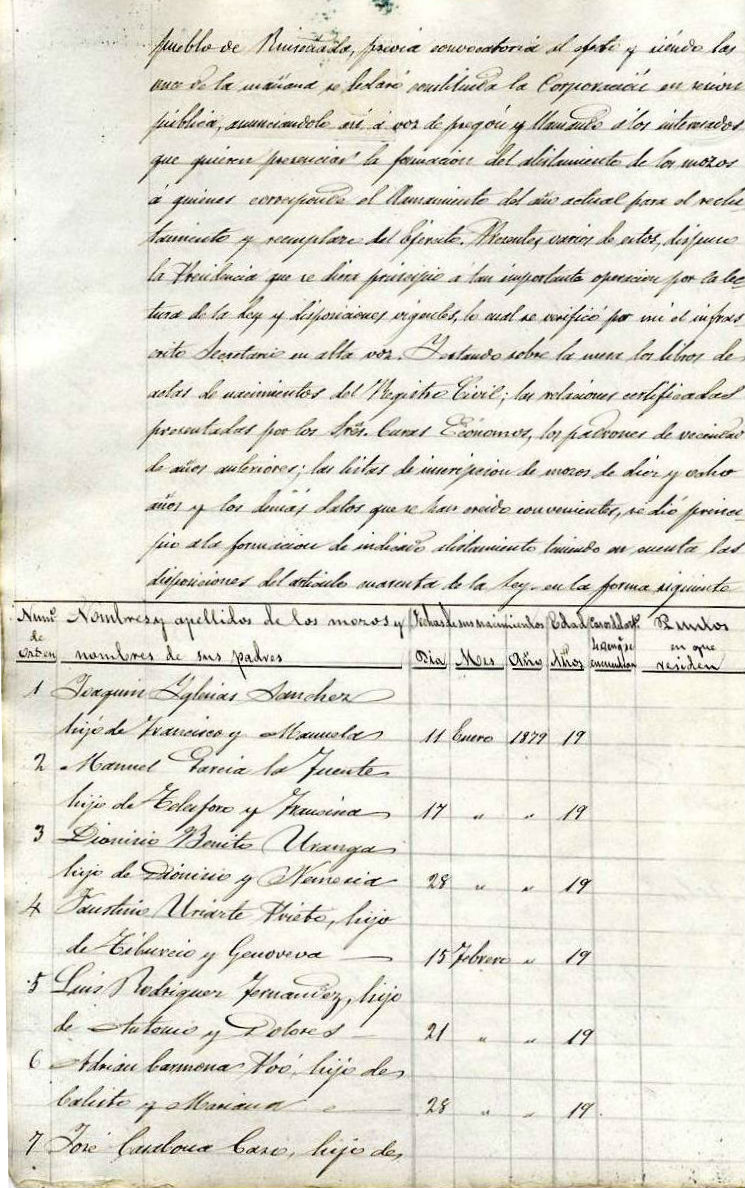 pueblo de Ruiseñada, previa convocatoria al efecto y siendo las
once de la mañana se declaró constituida la Corporación en sesion
pública, anunciandolo asi á voz de pregón y llamando á los interesados
que quieran presenciar la formación del alistamiento de los mozos
á quienes corresponde el llamamiento del año actual para el reclu-
tamiento y reemplazo del Ejército. Presentes varios de estos, dispuso
la Presidencia que se diera principio á tan importante operacion por la lec-
tura de la ley y disposiciones vigentes, lo cual se verificó por mi el infras
crito Secretario en alta voz. Y estando sobre la mesa los libros de
actas de nacimientos del Registro Civil; las relaciones certificadas
presentadas por los Sres. Curas Ecónomos, los padrones de vecindad
de años anteriores; las listas de inscripcion de mozos de diez y ocho
años y los demás datos que se han creido convenientes, se dió princi-
pio a la formacion de indicado alistamiento teniendo en cuenta las
disposiciones del articulo cuarenta de la Ley en la forma siguiente
Numº de Orden Nombres y apellidos de los mozos y nombres de sus padres Fechas de sus nacimientos Dia Mes Año Edad Años en que se encuentran Pueblos en que residen
1 Joaquin Yglesias Sanchez
hijo de Francisco y Manuela 11 Enero 1879 19
2 Manuel Garcia la Fuente
hijo de Telesforo y Francisca 17 " " 19
3 Dionisio Benito Uranga
hijo de Dionisio y Nemesia 28 " " 19
4 Faustino Uriarte Prieto, hijo
de Tiburcio y Genoveva 15 Febrero " 19
5 Luis Rodriguez Fernandez, hijo
de Antonio y Dolores 21 " " 19
6 Adrian Carmona Poó, hijo de
Calisto y Mariana 28 " " 19
7 José Cardona Caso, hijo de